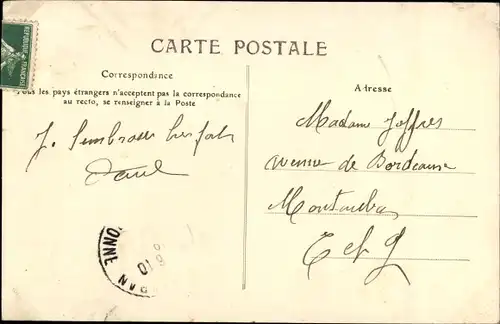 CARTE POSTALE
Correspondance
Tous les pays étrangers n'acceptent pas la correspondance
au recto, se renseigner à la Poste
Adresse
REPUBLIQUE
FRANÇAISE
J.
Paul
Madame Joffres
Avenue de Bordeaux
Montauban
T et G
ONNE
10